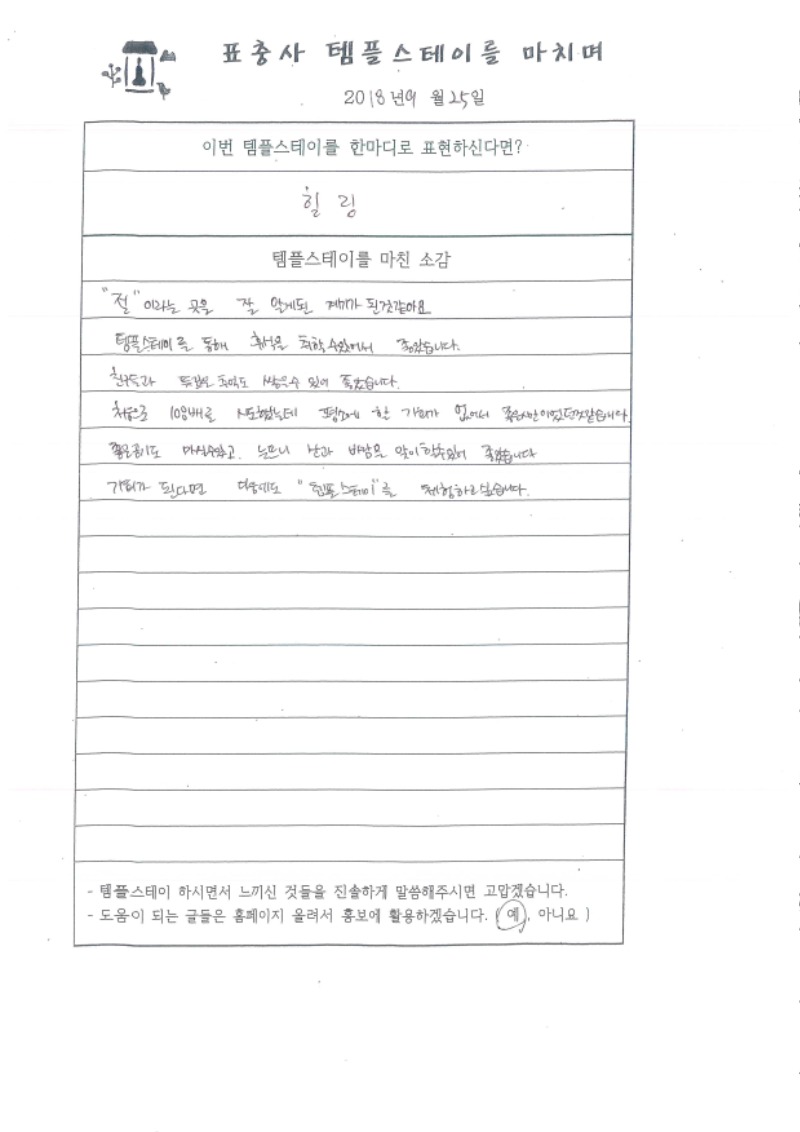 표충사 템플스테이를 마치며
2018년 9월 25일
이번 템플스테이를 한마디로 표현하신다면?
힐링
템플스테이를 마친 소감
"절"이라는 곳을 잘 알게된 계기가 된것같아요
템플스테이를 통해 휴식을 취할수있어서 좋았습니다.
친구들과 특별한 추억도 쌓을수 있어 좋았습니다.
처음으로 108배를 시도했는데 평소에 할 기회가 없어서
좋은공기도 마실수있고. 눈으로 산과 바람을 많이 수있어 좋았습니다
기회가 된다면 다음에도 "템플스테이"를 체험하고싶습니다.
- 템플스테이 하시면서 느끼신 것들을 진솔하게 말씀해주시면 고맙겠습니다.
- 도움이 되는 글들은 홈페이지 올려서 홍보에 활용하겠습니다. ( 예, 아니요 )